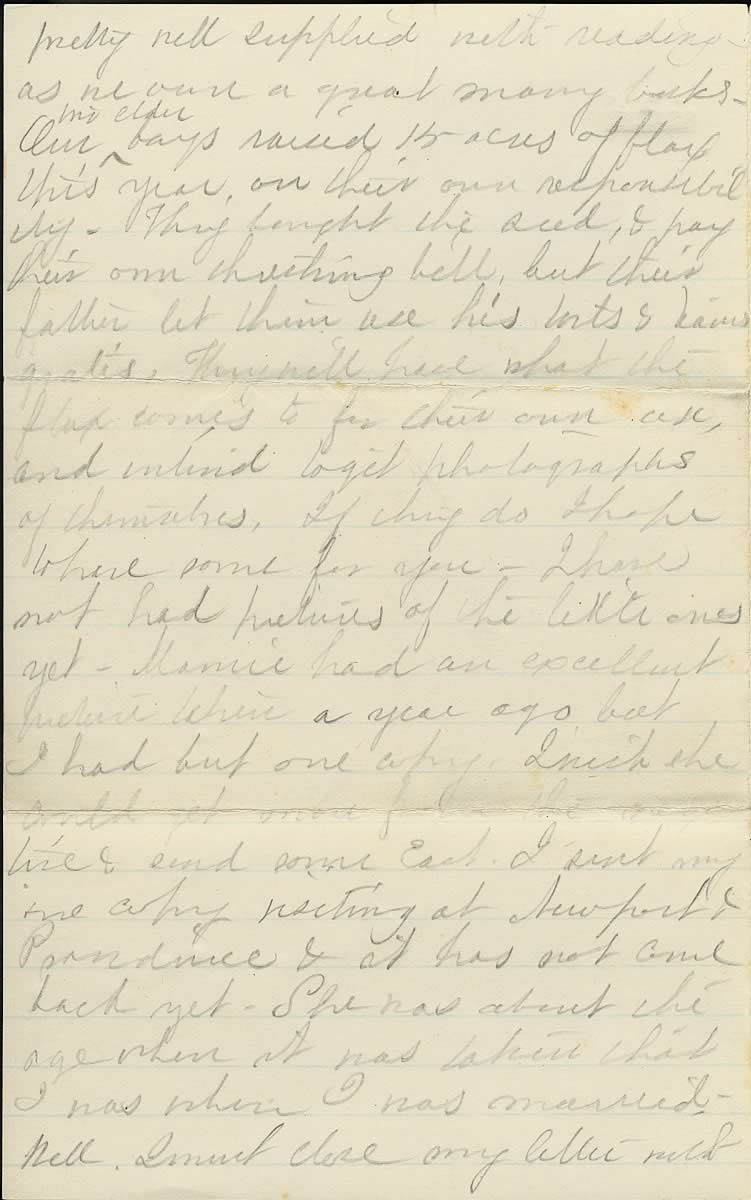 pretty well supplied with reading
as we own a great many books -
two elder
Our ^ boys raised 15 acres of flax
this year, on their own responsibil
ity - They bought the seed, & pay
their own threshing bill, but their
father let them use his lots & team
gratis. They will have what the
flax comes to for their own use,
and intend to get photographs
of themselves, If they do I hope
to have some for you - I have
not had pictures of the little ones
yet - Mamie had an excellent
picture taken a year ago but
I had but one copy. I wish she
could get more from the nega
tive & send some East. I sent my
one copy visiting at Newport &
Providence & it has not come
back yet - She was about the
age when it was taken that
I was when I was married -
Well. I must close my letter with